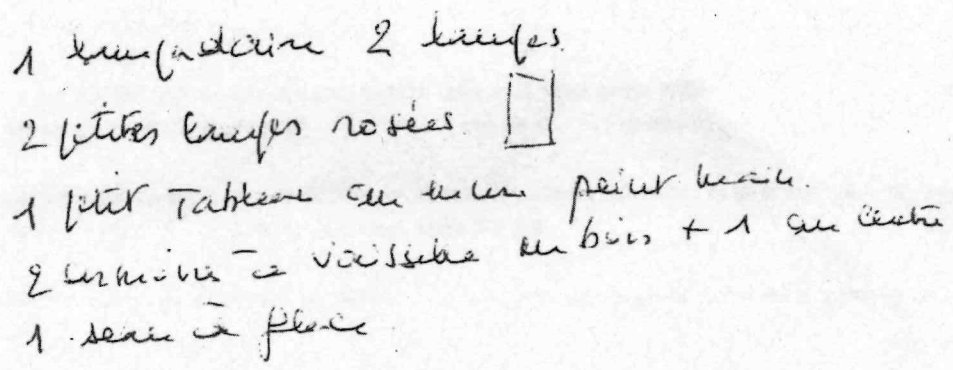 1 lampadaire 2 lampes
2 petites lampes rosées
1 petit Tableau peint main
2 armoire à vaisselle en bois + 1 au centre
1 seau à